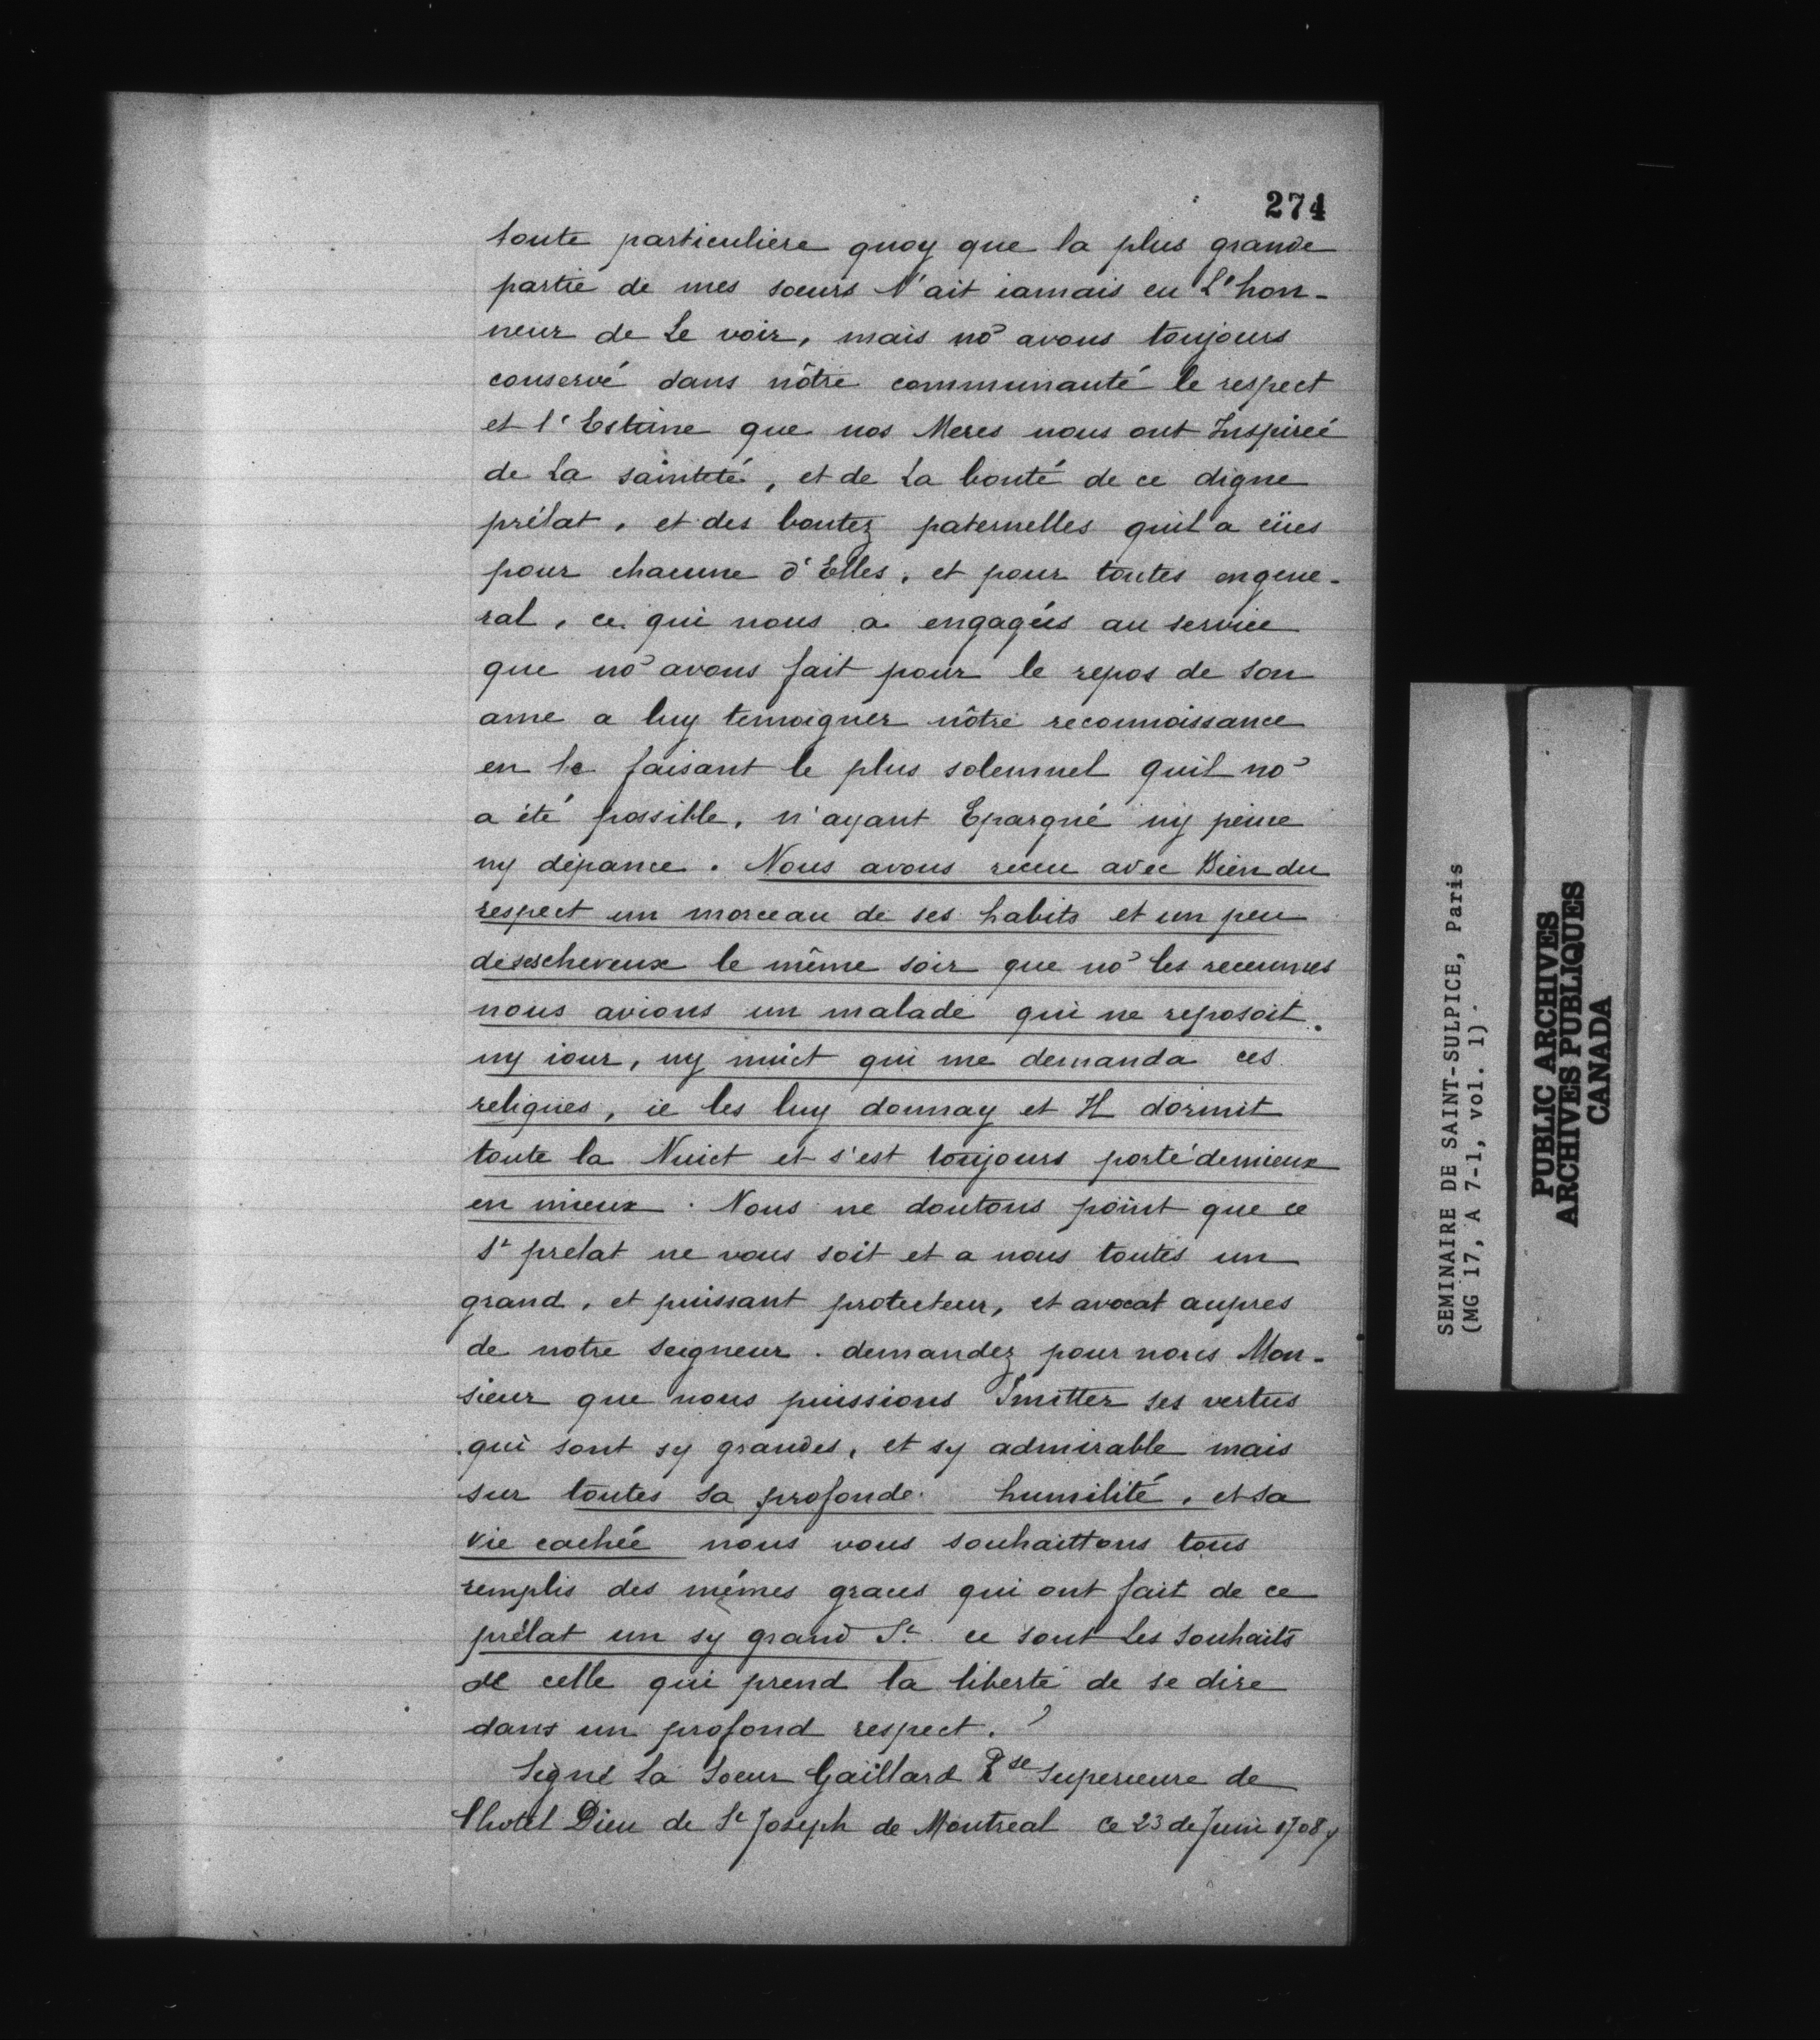 274
toute particuliere quoy que la plus grande
partie de mes soeurs N'ait iamais eu L'hon-
neur de Le voir, mais no' avons toujours
conservé dans nôtre communauté le respect
et l'Estime que nos Meres nous ont Inspireé
de La sainteté, et de La bonté de ce digne
prélat, et des bontez paternelles quil a eües
pour chacune d'Elles, et pour toutes engene-
ral, ce qui nous a engagées au service
que no' avons fait pour le repos de son
ame a luy temoigner nôtre reconnoissance
en le faisant le plus solemnel quil no'
a été possible, n'ayant Epargné ny peine
ny dépance. Nous avons receu avec Bien du
respect un morceau de ses habits et un peu
desescheveux le même soir que no' les receumes
nous avions un malade qui ne reposoit
ny iour, ny nuict qui me demanda ces
reliques, ie les luy donnay et Il dormit
toute la Nuict et s'est toujours porté demieux
en mieux. Nous ne doutons point que ce
St prelat ne vous soit et a nous toutes un
grand, et puissant protecteur, et avocat aupres
de notre Seigneur. demandez pour nous Mon-
sieur que nous puissions Imitter ses vertus
qui sont sy grandes, et sy admirable mais
sur toutes sa profonde humilité, et sa
vie cachée nous vous souhaittons tous
remplis des mémes graces qui ont fait de ce
prélat un sy grand St. ce sont les souhaits
de celle qui prend la liberté de se dire
dans un profond respect.
Signé La Soeur Gaillard Rse Superieure de
l'hotel Dieu de St Joseph de Montreal ce 23 de Juin 1708
SEMINAIRE DE SAINT-SULPICE, Paris
(MG 17, A 7-1, vol. 1).
PUBLIC ARCHIVES
ARCHIVES PUBLIQUES
CANADA